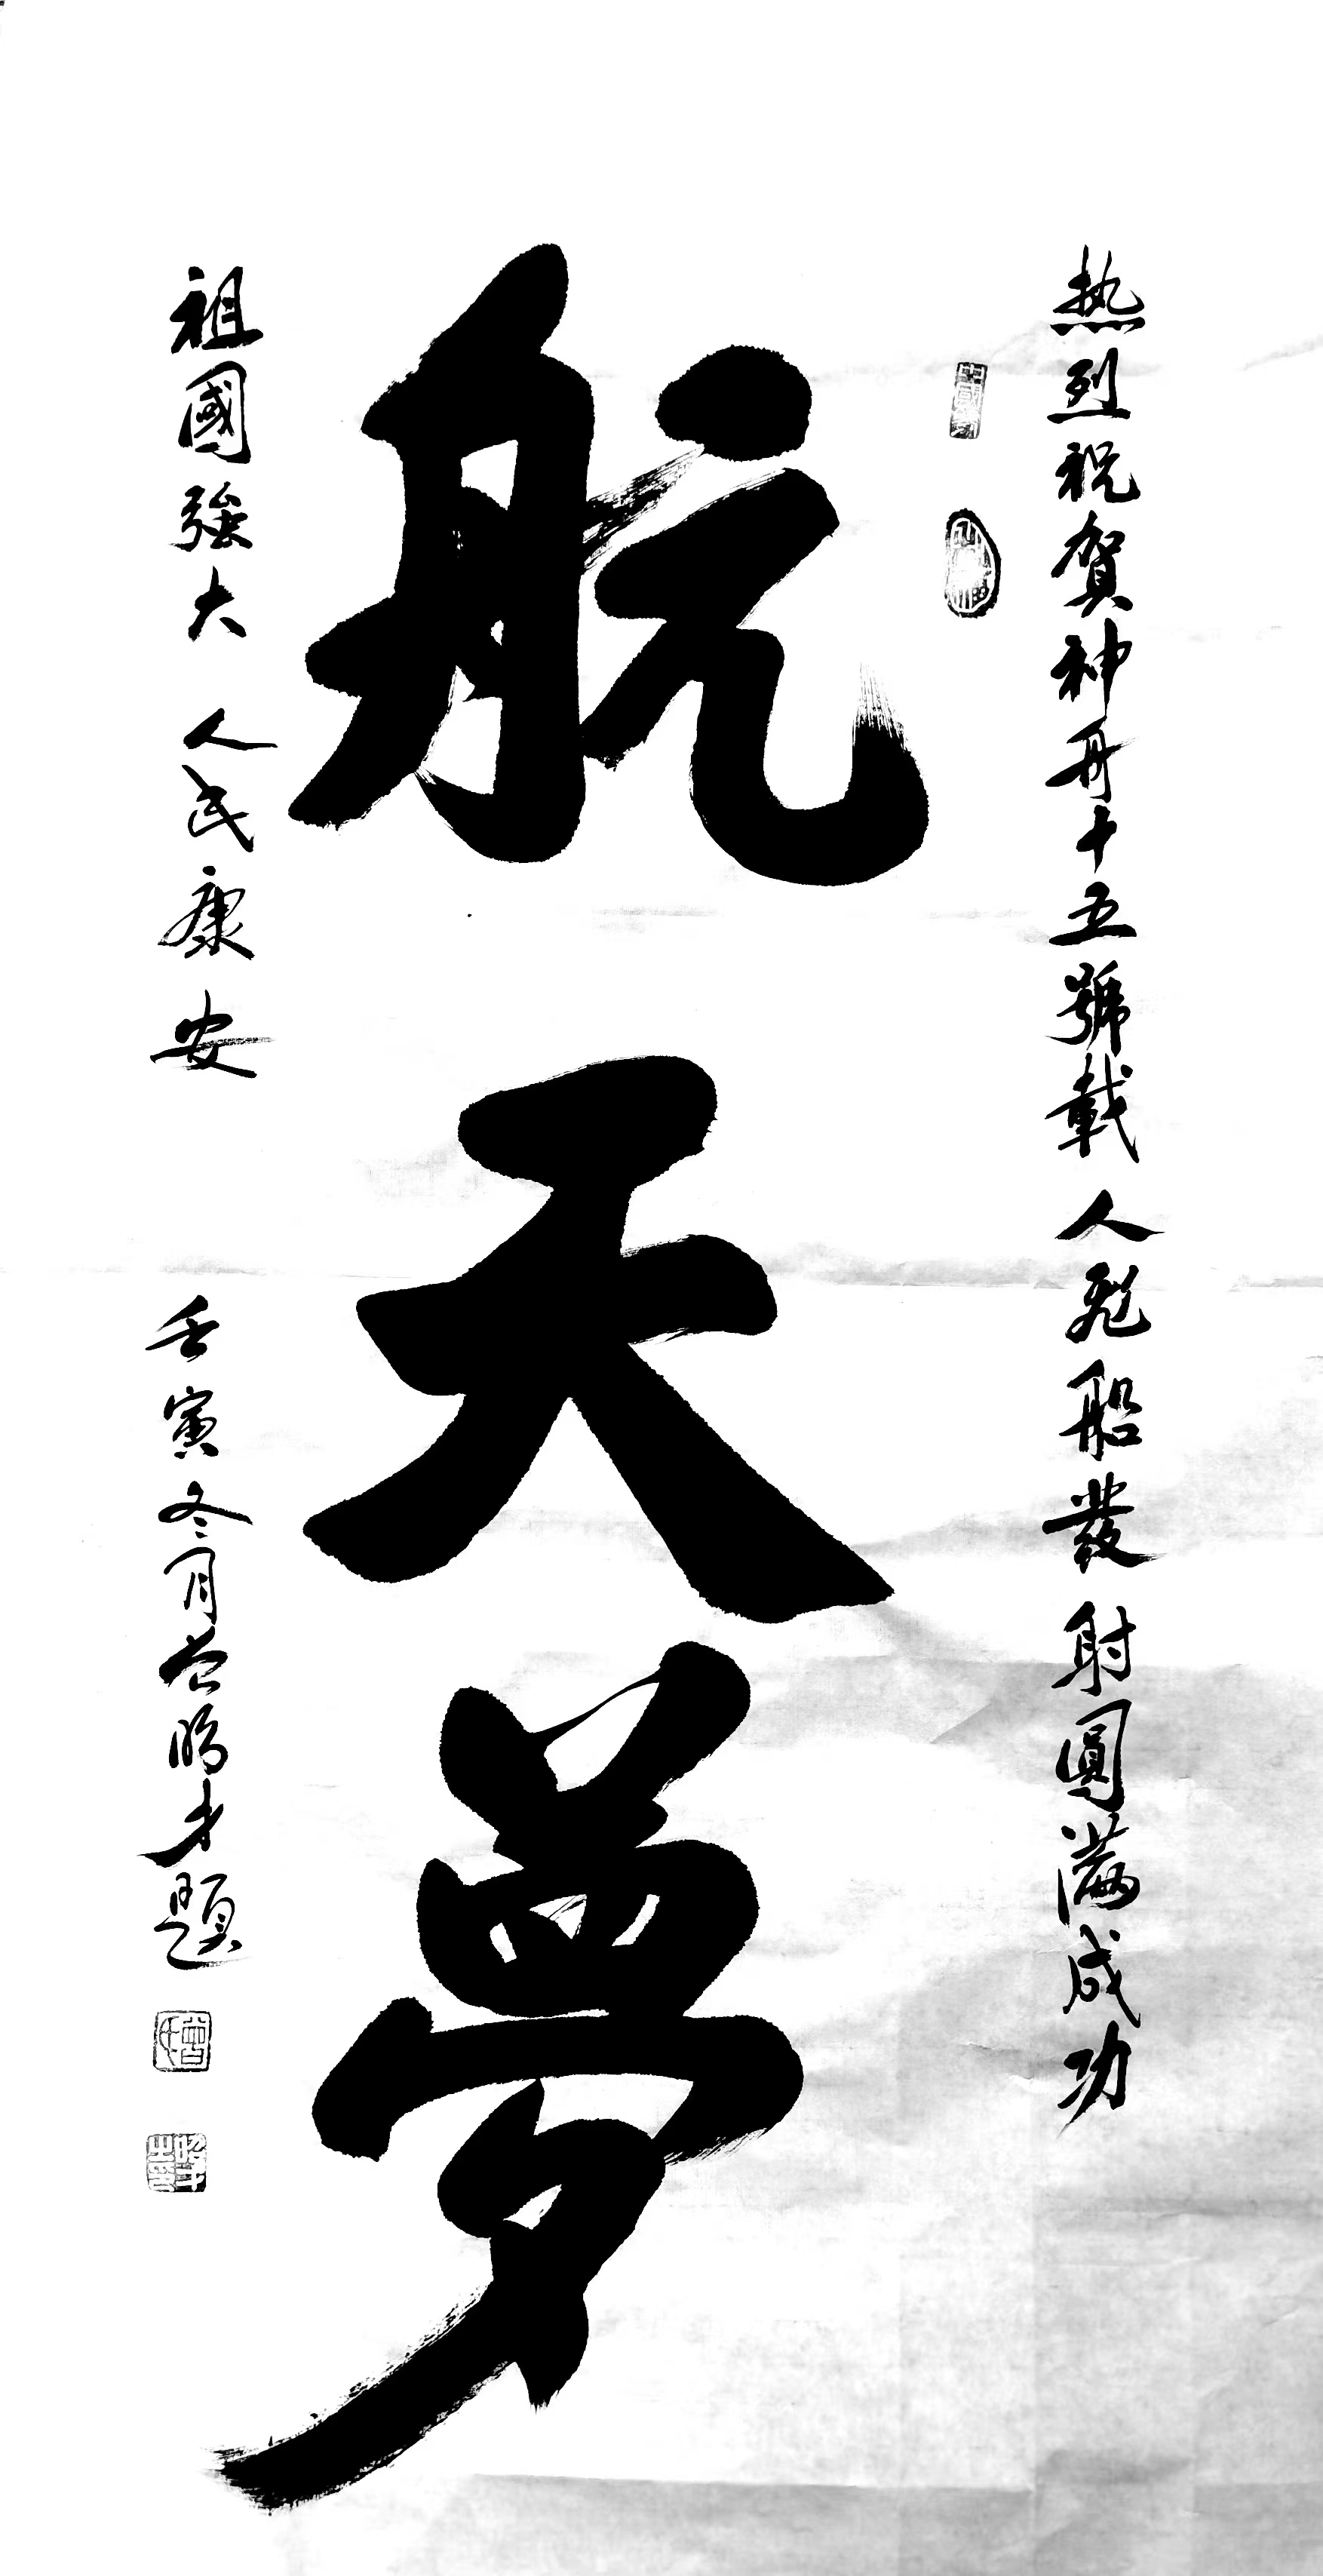 热烈祝贺神舟十五號載人飛船發射圓滿成功
航天夢
祖國強大 人民康安
壬寅冬月曾昭才題